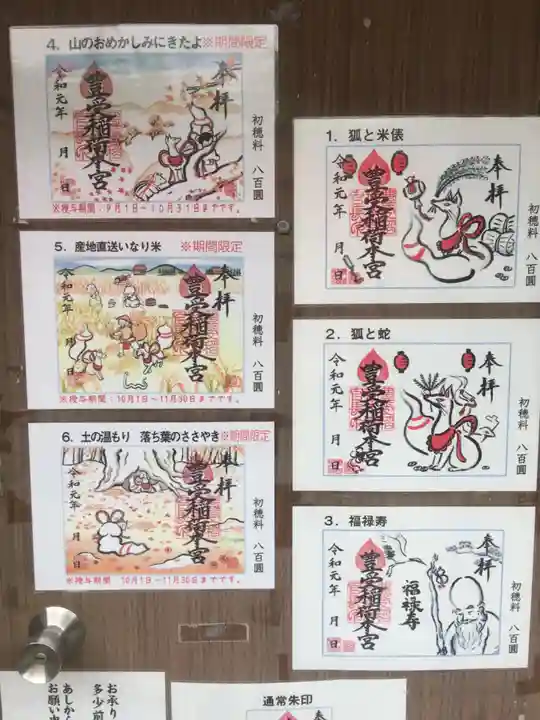 4. 山のおめかしみにきたよ※期間限定
奉拝
豊受稲荷本宮
令和元年 月 日
初穂料 八百圓
※授与期間：9月1日～10月31日までです。
5. 産地直送いなり米 ※期間限定
奉拝
豊受稲荷本宮
令和元年 月 日
初穂料 八百圓
※授与期間：10月1日～11月30日までです。
6. 土の温もり 落ち葉のささやき※期間限定
奉拝
豊受稲荷本宮
令和元年 月 日
初穂料 八百圓
※授与期間 10月1日～11月30日までです。
1. 狐と米俵
奉拝
豊受稲荷本宮
令和元年 月 日
初穂料 八百圓
2. 狐と蛇
奉拝
豊受稲荷本宮
令和元年 月 日
初穂料 八百圓
3. 福禄寿
奉拝
福禄寿
豊受稲荷本宮
令和元年 月 日
初穂料 八百圓
お承り
多少前
あしから
お願い
通常朱印
奉拝